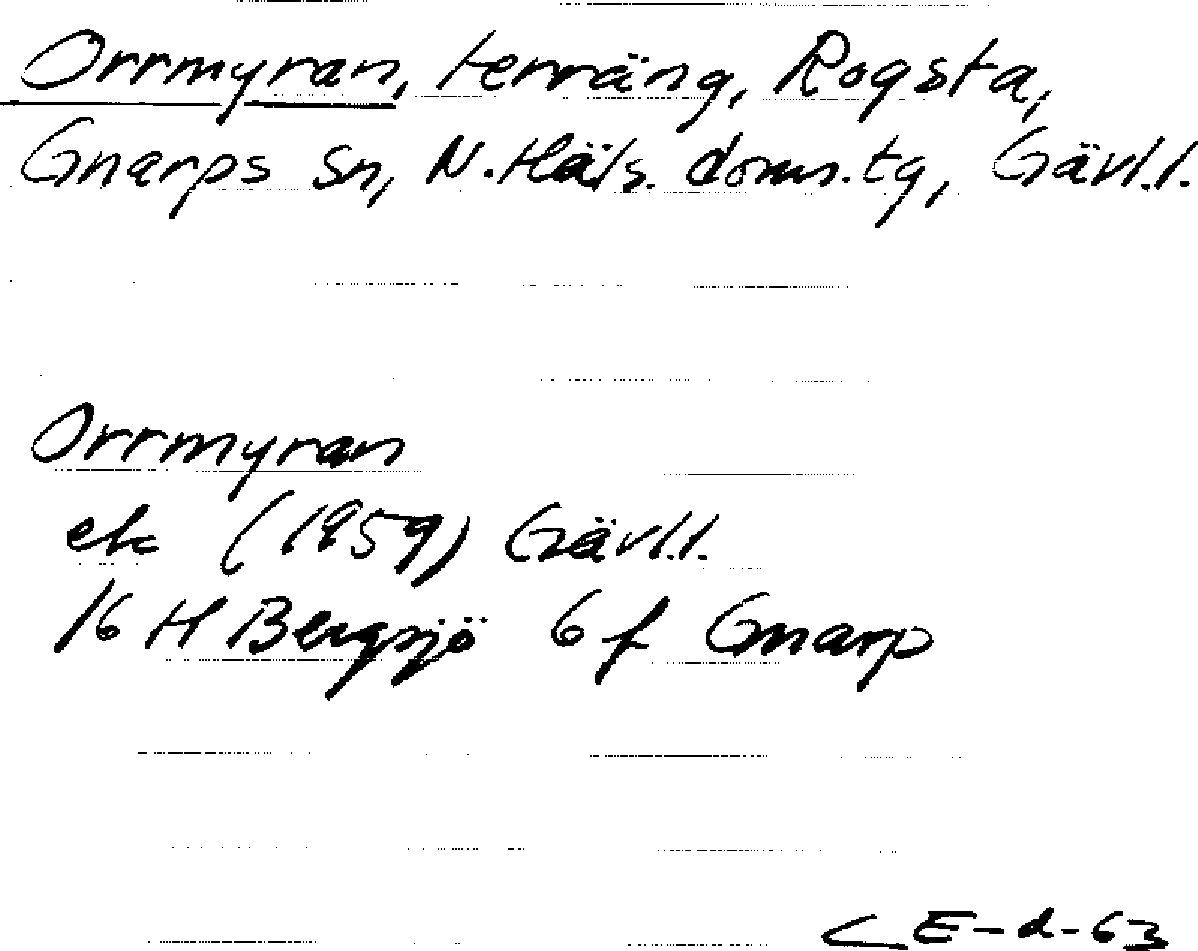 Orrmyran, terräng, Rogsta,
Gnarps sn, N. Häls. doms.tg, Gävl.l.
Orrmyran
ek (1959) Gävl.l.
16 H Bergsjö 6 f Gnarp
CE-d-63